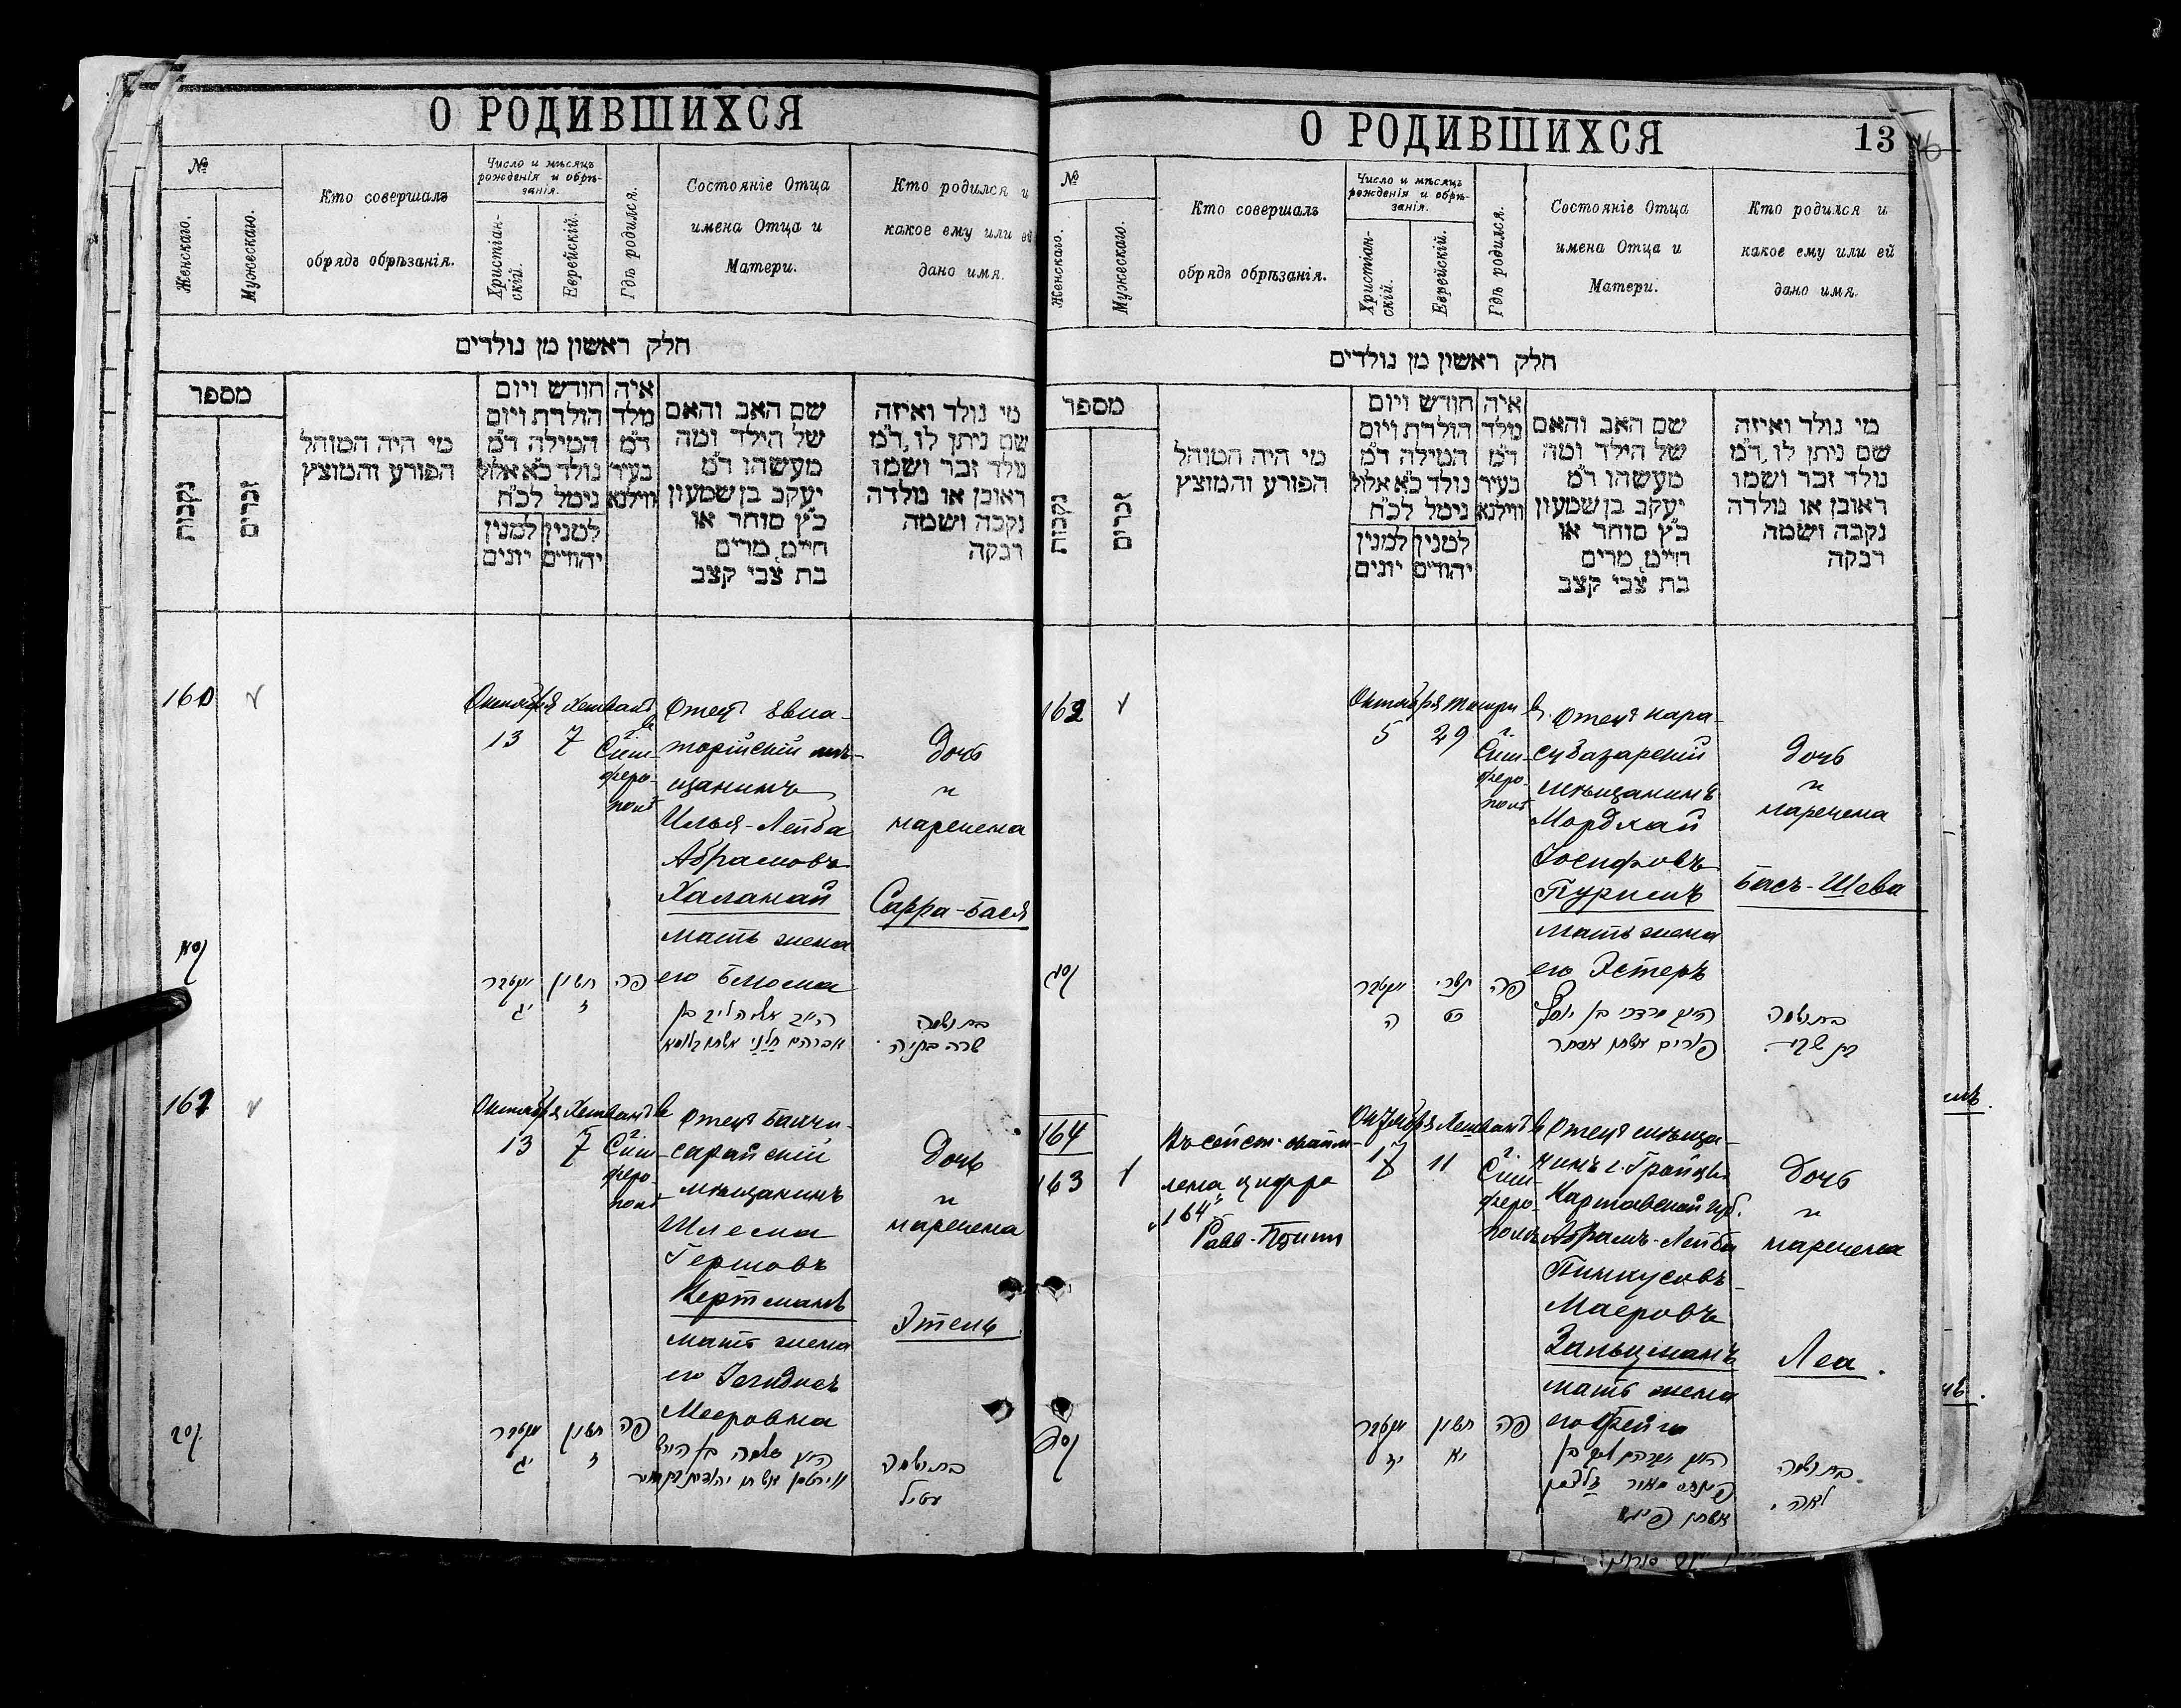 О РОДИВШИХСЯ
№
Женскаго.
Мужескаго.
Кто совершалъ
обрядъ обрѣзанія.
Число и мѣсяцъ
рожденія и обрѣ-
занія.
Христіан-
скій.
Еврейскій.
Гдѣ родился.
Состояніе Отца
имена Отца и
Матери.
Кто родился и
какое ему или ей
дано имя.
חלק ראשון מן נולדים
מספר
נקבות
זכרים
מי היה המוהל
הפורע והמוצץ
חודש ויום
הולדת ויום
המילה ד״מ
נולד כ״א אלול
נימל לכ״ח
למנין
יהודים
למנין
יונים
איה
נולד
ד״מ
בעיר
ווילנא
שם האב והאם
של הילד ומה
מעשהו ד״מ
יעקב בן שמעון
כ״ץ סוחר או
חייט, מרים
בת צבי קצב
מי נולד ואיזה
שם ניתן לו, ד״מ
נולד זכר ושמו
ראובן או נולדה
נקבה ושמה
רבקה
160
Октября
13
Хешванъ
7
въ
г.
Сим-
феро-
полѣ
Отецъ Евпа-
торійскій мѣ-
щанинъ
Илья-Лейба
Абрамовъ
мать жена
его Блюма
Дочь
и
наречена
Сарра-Бася
אקטבר
יג
חשון
ז
פה
בת ושמה
161
Октября
13
Хешванъ
7
въ
г.
Сим-
феро-
полѣ
Отецъ Бахчи-
сарайскій
мѣщанинъ
Шлема
Гершовъ
мать жена
его
Мееровна
Дочь
и
наречена
Этель
אקטבר
יג
חשון
ז
פה
בת ושמה
עטיל
О РОДИВШИХСЯ
13
№
Женскаго.
Мужескаго.
Кто совершалъ
обрядъ обрѣзанія.
Число и мѣсяцъ
рожденія и обрѣ-
занія.
Христіан-
скій.
Еврейскій.
Гдѣ родился.
Состояніе Отца
имена Отца и
Матери.
Кто родился и
какое ему или ей
дано имя.
חלק ראשון מן נולדים
מספר
נקבות
זכרים
מי היה המוהל
הפורע והמוצץ
חודש ויום
הולדת ויום
המילה ד״מ
נולד כ״א אלול
נימל לכ״ח
למנין
יהודים
למנין
יונים
איה
נולד
ד״מ
בעיר
ווילנא
שם האב והאם
של הילד ומה
מעשהו ד״מ
יעקב בן שמעון
כ״ץ סוחר או
חייט, מרים
בת צבי קצב
מי נולד ואיזה
שם ניתן לו, ד״מ
נולד זכר ושמו
ראובן או נולדה
נקבה ושמה
רבקה
162
Октября
5
Тишри
29
въ
г.
Сим-
феро-
полѣ
Отецъ Кара-
субазарскій
мѣщанинъ
Мордхай
Іосифовъ
Пуримъ
мать жена
его Эстеръ
Дочь
и
наречена
Басъ-Шева
אקטבר
ה
תשרי
כט
פה
פורים אשתו אסתר
בת ושמה
בת שבע
164
163
цифра
„164“
Октября
17
Хешванъ
11
въ
г.
Сим-
феро-
полѣ
Отецъ мѣща-
нинъ г.
губ.
Абрамъ-Лейба
Пинкусовъ-
Маеровъ
Зальцманъ
мать жена
его Фейга
Дочь
и
наречена
Леа.
אקטבר
יז
חשון
יא
פה
בת ושמה
לאה